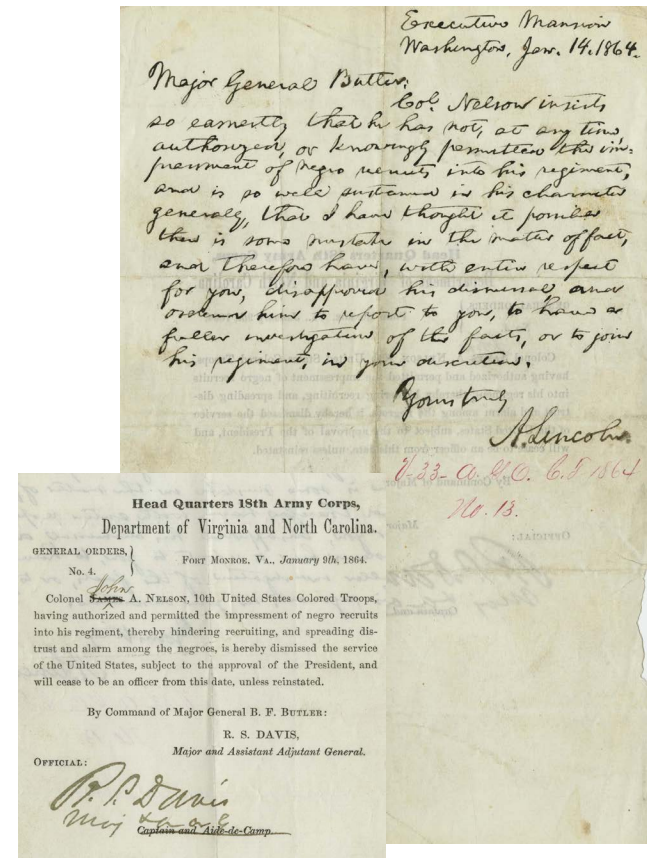 Executive Mansion
Washington, Jan. 14. 1864.
Major General Butler:
Col. Nelson insists
so earnestly that he has not, at any time
authorized, or knowingly permitted the im-
pressment of negro recruits into his regiment,
and is so well sustained in his character
generally, that I have thought it possible
there is some mistake in the matter of fact,
and therefore have, with entire respect
for you, disapproved his dismissal and
ordered him to report to you, to have a
fuller investigation of the facts, or to join
his regiment, in your discretion.
Yours truly
A. Lincoln.
V. 33- A. G. O. C. T. 1864
No. 13.
Head Quarters 18th Army Corps,
Department of Virginia and North Carolina.
GENERAL ORDERS,
No. 4.
FORT MONROE, VA., January 9th, 1864.
John
Colonel JAMES A. NELSON, 10th United States Colored Troops,
having authorized and permitted the impressment of negro recruits
into his regiment, thereby hindering recruiting, and spreading dis-
trust and alarm among the negroes, is hereby dismissed the service
of the United States, subject to the approval of the President, and
will cease to be an officer from this date, unless reinstated.
By Command of Major General B. F. BUTLER:
R. S. DAVIS,
Major and Assistant Adjutant General.
OFFICIAL:
R. S. Davis
Maj & A. A. G
Captain and Aide-de-Camp.